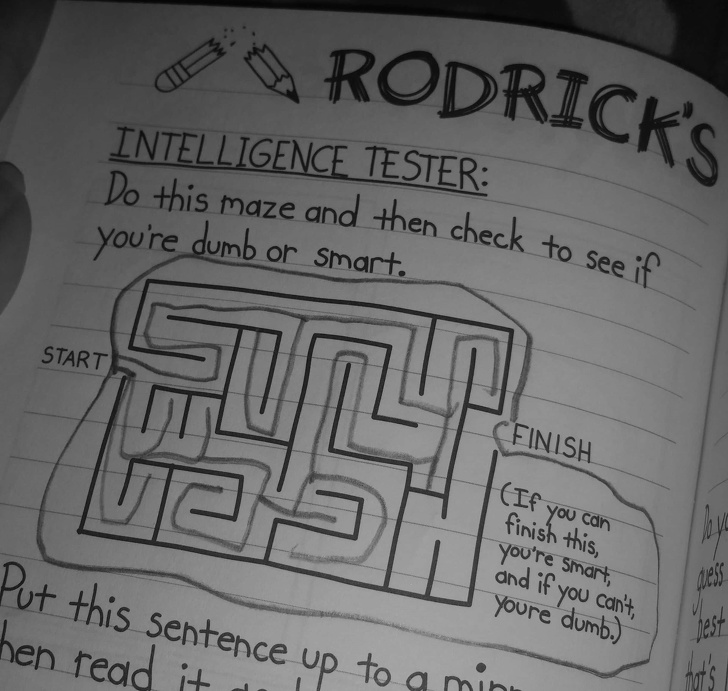 RODRICK'S
INTELLIGENCE TESTER:
Do this maze and then check to see if
you're dumb or smart.
START
FINISH
(If you can
finish this,
you're smart,
and if you can't,
youre dumb.)
Put this sentence up to a
hen read it
Do y
guess
best
that's